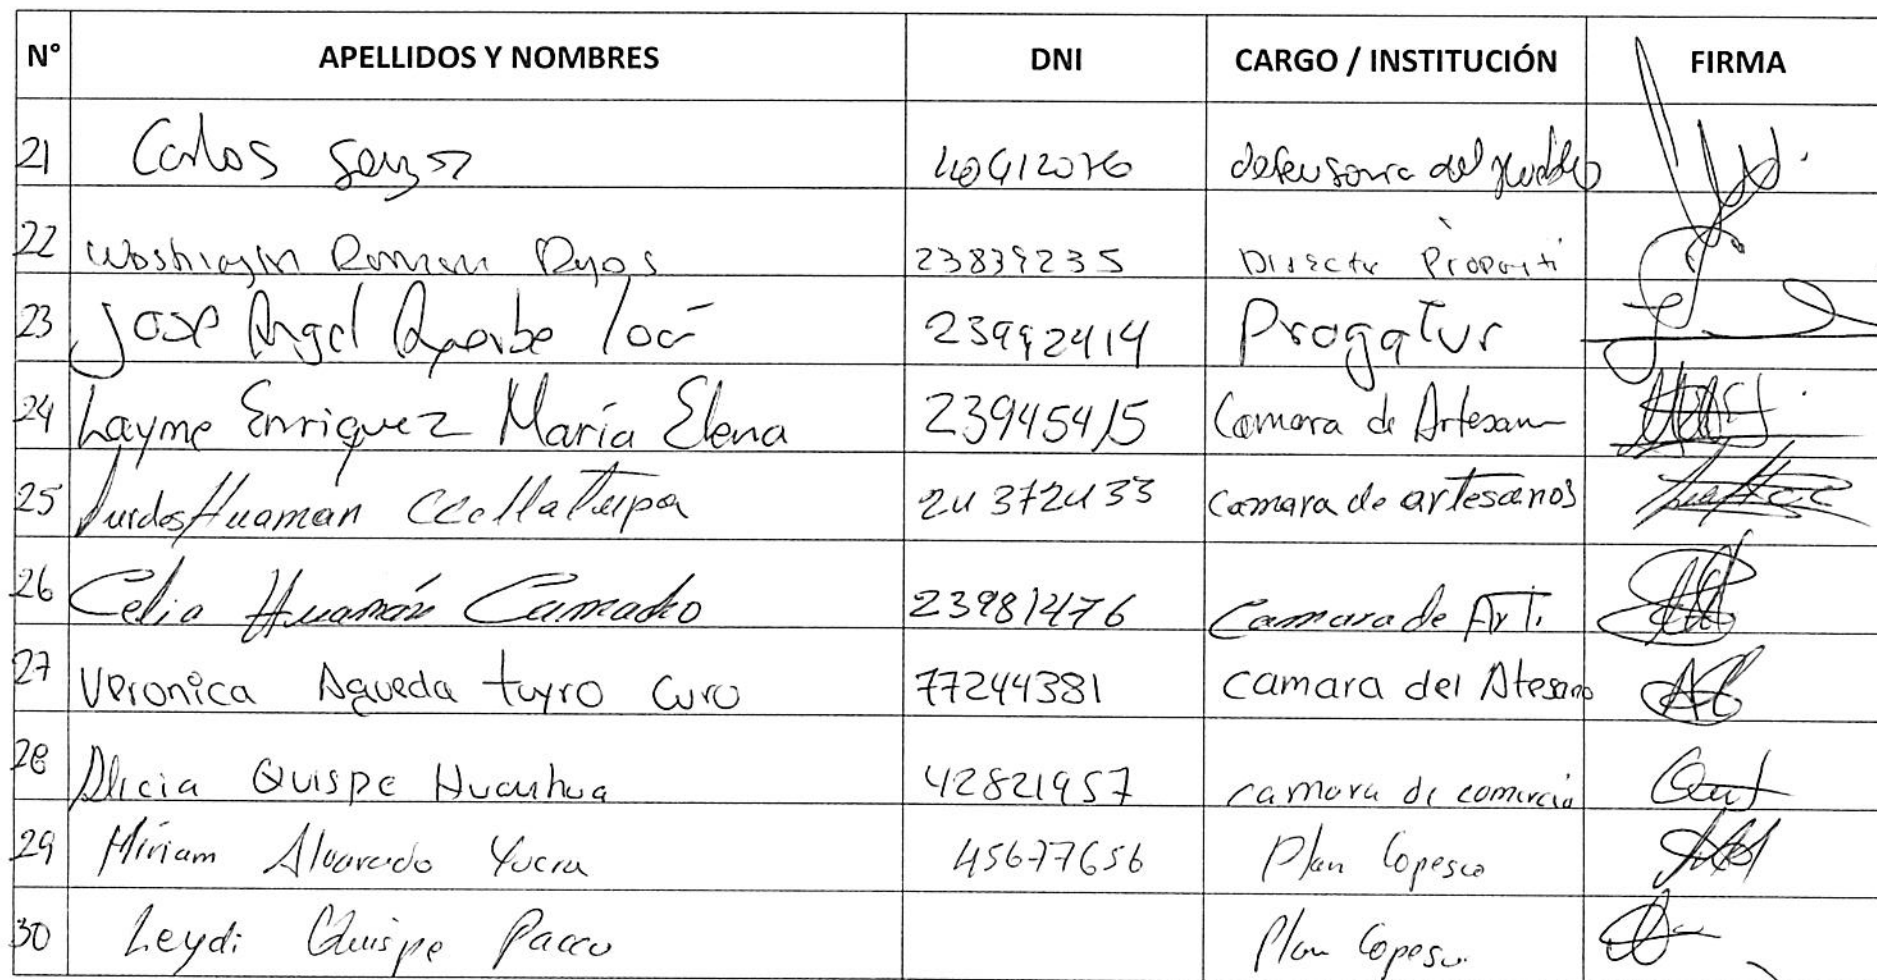 N° APELLIDOS Y NOMBRES DNI CARGO / INSTITUCIÓN FIRMA
21 Carlos defensoria del pueblo
22 Washington Roman 23839235
23 Jose Angel 23992414 Progatur
24 Layme Enriquez María Elena 23945415 Camara de
25 Lurdes Huaman Ccollatupa 24372433 camara de artesanos
26 Celia Huamán Camacho 23981476 Camara de Art.
27 Veronica Agueda tuyro Curo 77244381 camara del Atesano
28 Alicia Quispe 42821957 camara de comercio
29 Miriam Alvarado Yucra 45677656 Plan Copesco
30 Leydi Quispe Plan